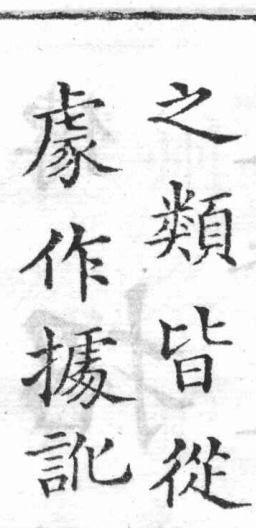 之類皆從
豦作據訛